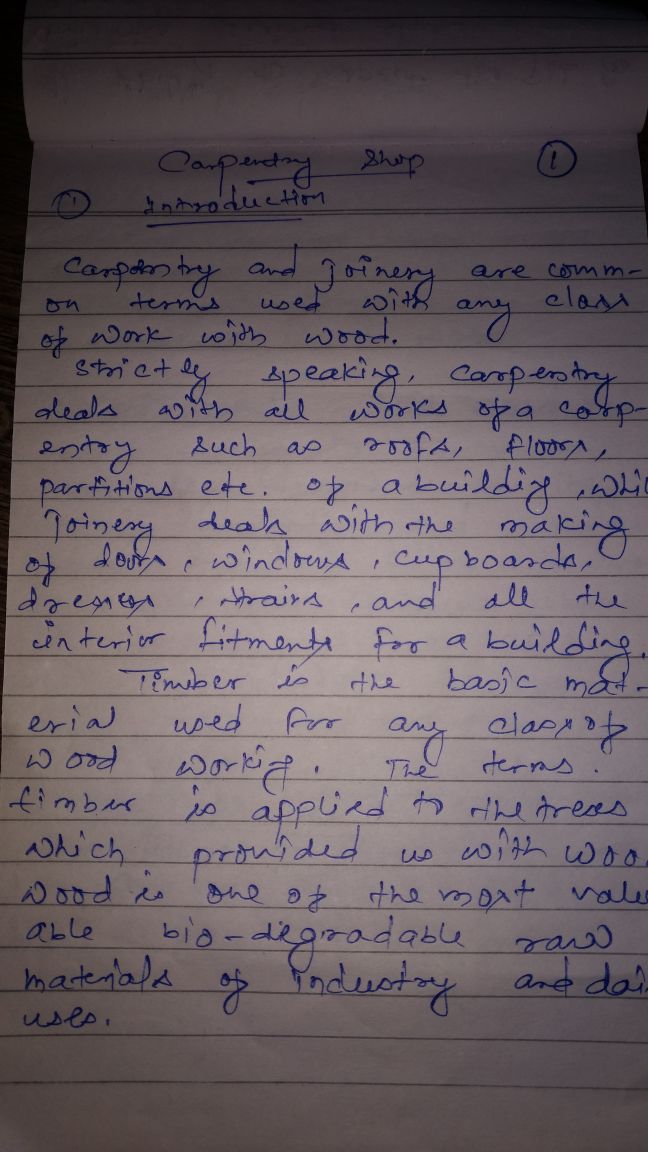 Carpentry Shop
1
1 Introduction
Carpentry and Joinery are comm-
on terms used with any class
of work with wood.
Strictly speaking, carpentry
deals with all works of a carp-
entry such as roofs, floors,
partitions etc. of a building, whi
Joinery deals with the making
of doors, windows, cupboards,
dresses, strairs, and all the
interior fitments for a building.
Timber is the basic mat-
erial used for any class of
wood working. The terms.
timber is applied to the trees
which provided us with woo
wood is one of the most valu
able bio-degradable raw
materials of industry and dai
uses.